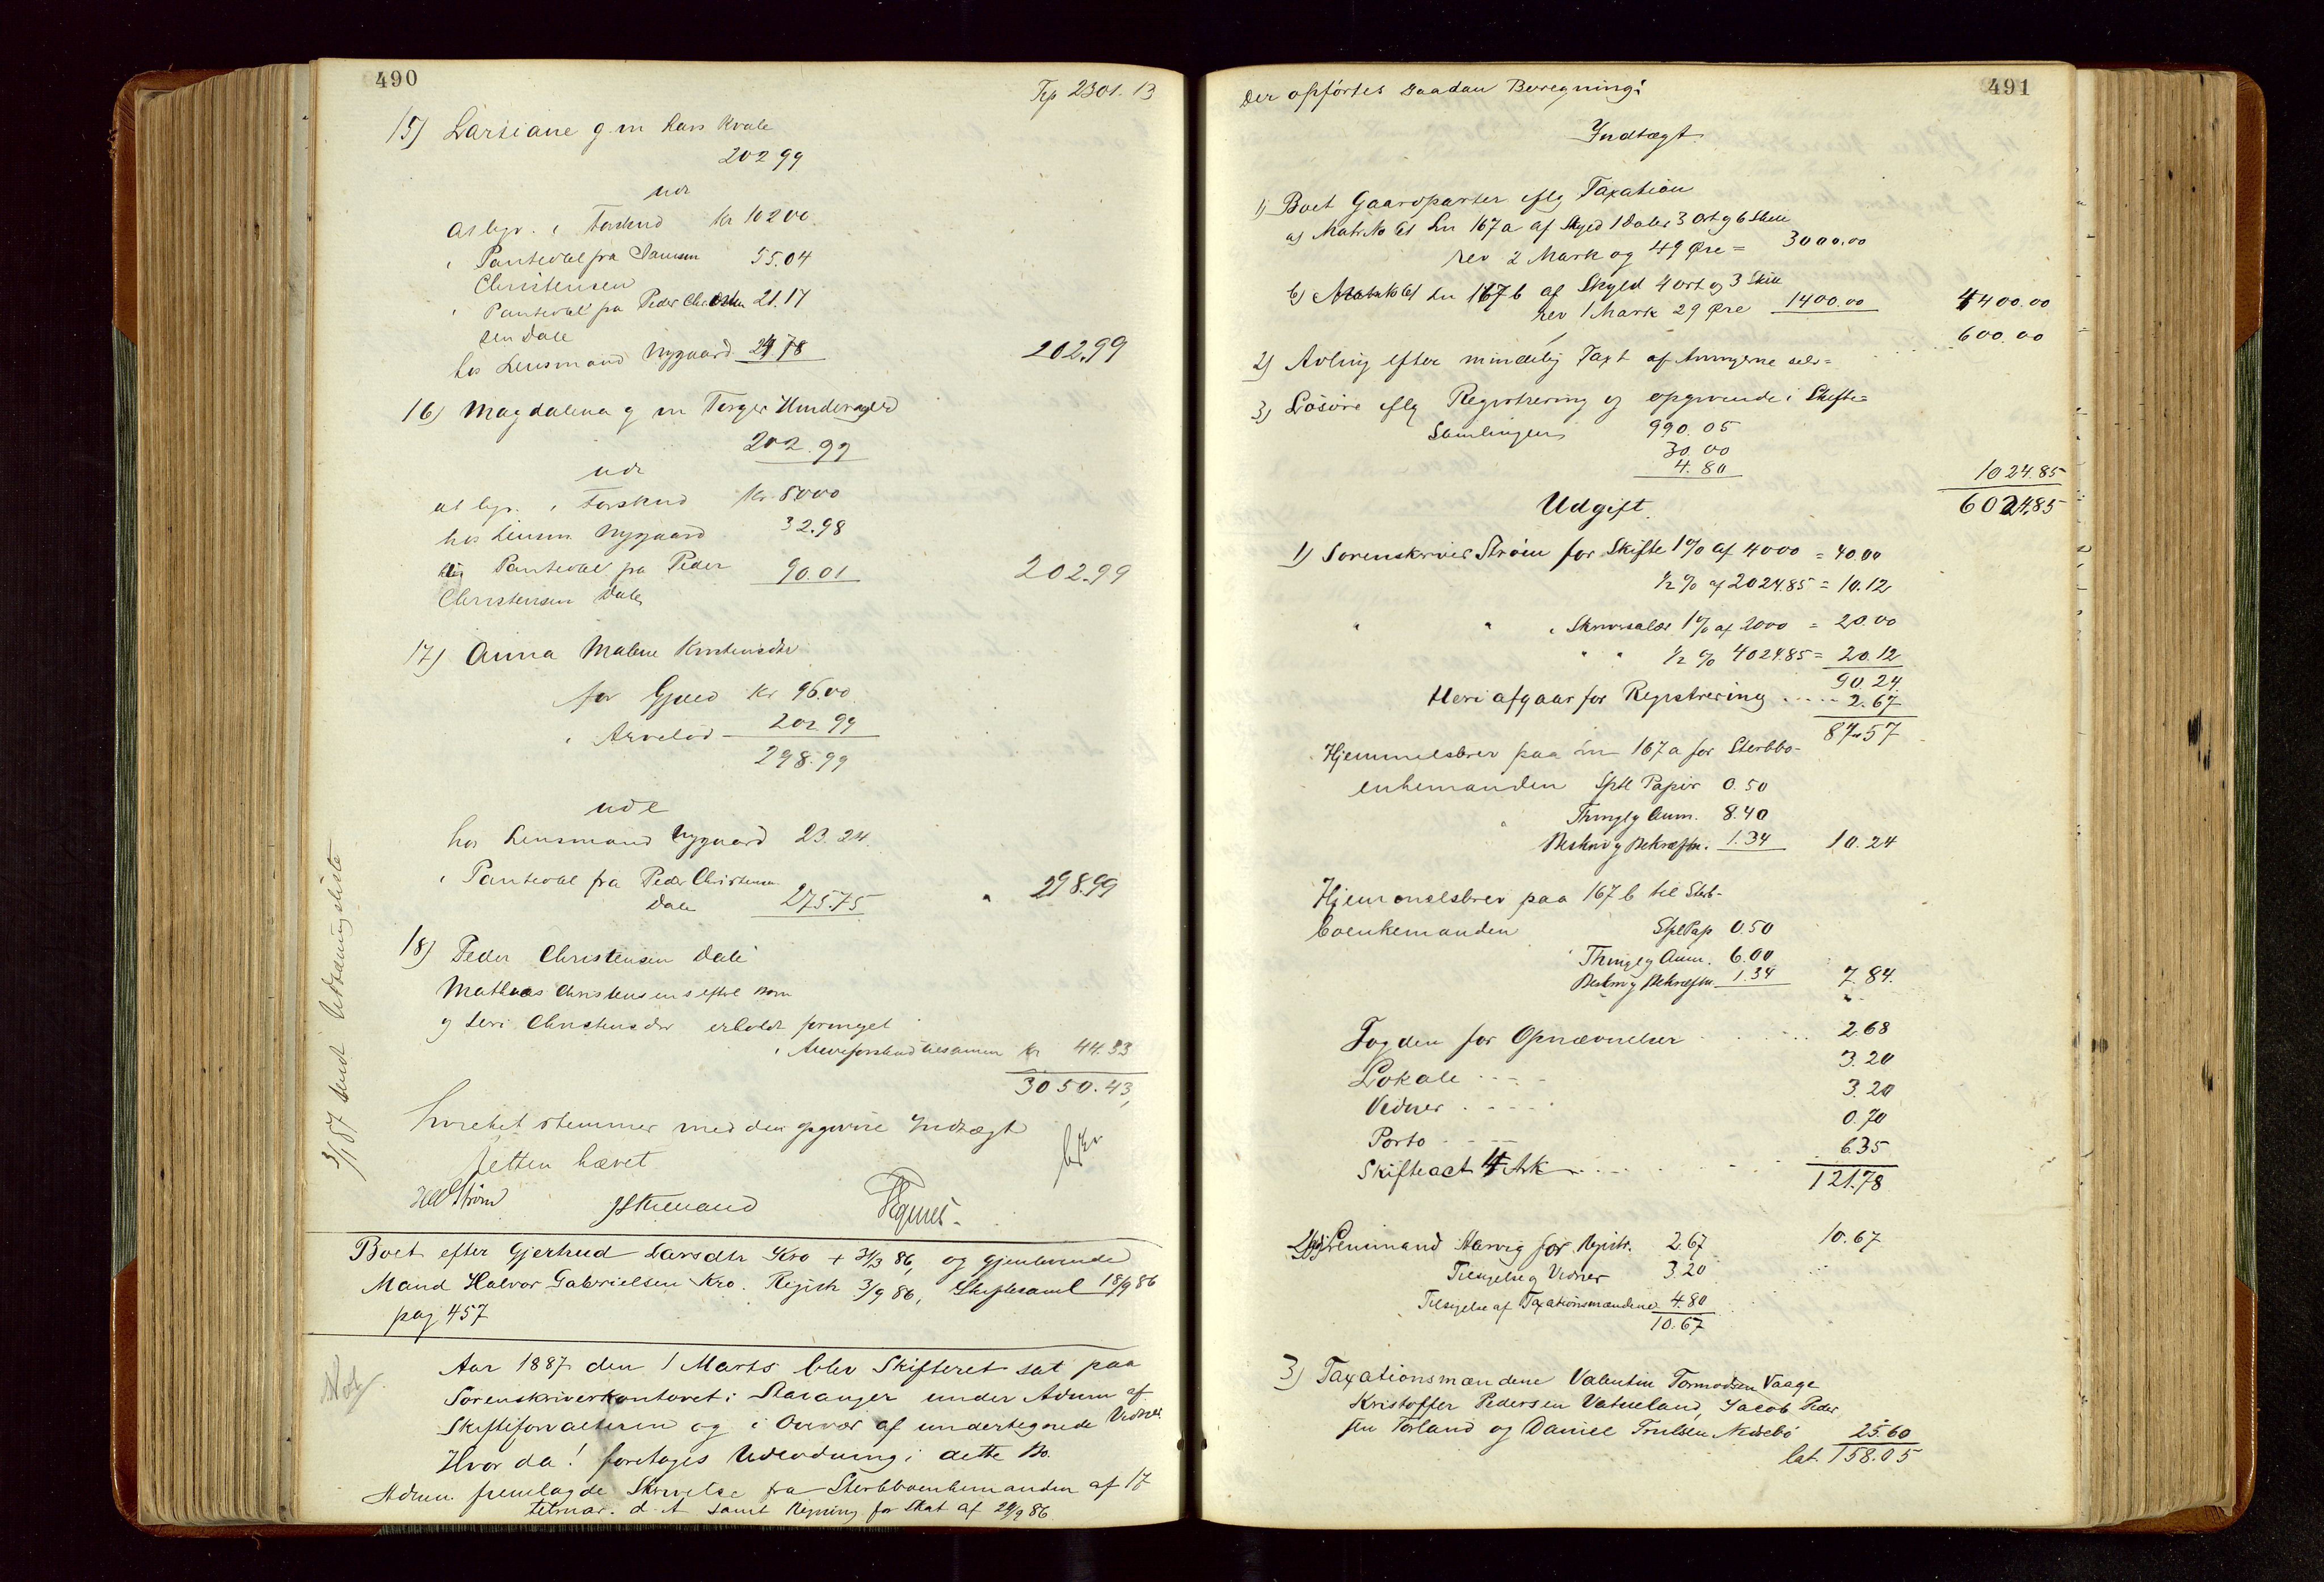 490
Trp 2301.13
15) Larsiane g m Lars Kvale
202 99
ude
at lign. i Forskud Kr 102 00.
i Panteobl fra Samson 55.04
Christensen
i Panteobl fra Peder Christen 21.17
sen Dale
hos Lensmand Nygaard 24 78 202.99
16) Magdalena g m Torger
202.99
ude
at lign. i Forskud Kr. 80 00
hos Lensm. Nygaard 32.98
i Panteobl fra Peder 90.01 202.99
Christensen Dale
17) Anna Malene Kristensdtr
for Gjæld Kr 96.00
" Arvelod 202 99
298.99
ude
hos Lensmand Nygaard 23.24.
i Panteobl fra Peder Christensen
Dale 275.75 " 298.99
18) Peder Christensen Dale
Mathias Christensens eftl Børn
g Seri Christensdtr erholdt formeget
i Arveforskud tilsammen kr 44.33
3050.43
hvilket stemmer med den opgivne Indtægt
Retten hævet
Strøm
3/1 87 sendt Udlodningsliste
Boet efter Gjertrud Larsdtr Kro + 31/3 86, og gjenlevende
Mand Halvor Gabrielsen Kro. Registr 3/9 86, Skiftesaml 18/9 86
pag 457
Not
Aar 1887 den 1 Marts blev Skifteret sat paa
Sorenskriverkontoret i Stavanger under Adm af
Skifteforvalteren og i Overvær af undertegnede Vidner
Hvor da! foretoges Udlodning i dette Bo.
Adm. fremlagde Skrivelse fra Sterbboenkemanden af 17
Februar. d. A samt Regning for Skat af 29/9 86
491
Der opførtes saadan Beregning:
Indtægt
1) Boet Gaardparter iflg Taxation
a) Matr No 61 Ln 167a af Skyld 1 Daler 3 Ort g 6 Skill
rev 2 Mark og 49 Øre = 3000.00
b) Matr No 61 Ln 167b af Skyld 4 ort g 3 Skill
rev 1 Mark 29 Øre 1400.00 4400.00
2) Avling efter mindelig Taxt af Arvingerne selv = 600.00
3) Løsøre iflg Registrering og opgivende i Skifte=
Samlingen 990.05
30.00
4.80 1024.85
6024.85
Udgift
1) Sorenskriver Strøm for Skifte 1% af 4000 = 40.00
1/2 % af 2024.85 = 10.12
" " " Skriversalær 1% af 2000 = 20.00
" " 1/2 % 4024.85 = 20.12
90.24
Heri afgaar for Registrering .... 2.67
87.57
Hjemmelsbrev paa Ln 167a for Sterbbo-
enkemanden Sptl Papir 0.50
" Thingly Anm. 8.40
Beskriv g Bekræftn. 1.34 10.24
Hjemmelsbrev paa 167b til Sterb-
boenkemanden StplPap 0.50
" Thingly Anm. 6.00
Beskriv g Bekræftn 1.34 7.84.
Fogden for Opnævnelser 2.68
Lokale 3.20
Vidner 3.20
Porto 0.70
Skifteact 4 Ark 6.35
121.78
2) Lensmand Aarvig for Registr. 2.67 10.67
Tilsigelse g Vidner 3.20
Tilsigelse af Taxationsmændene 4.80
10.67
3) Taxationsmændene Valentin Tormodsen Vaage
Kristoffer Pedersen Vatneland, Jacob Peder
sen Torland og Daniel Trulsen Nesebø 25.60
lat. 158.05